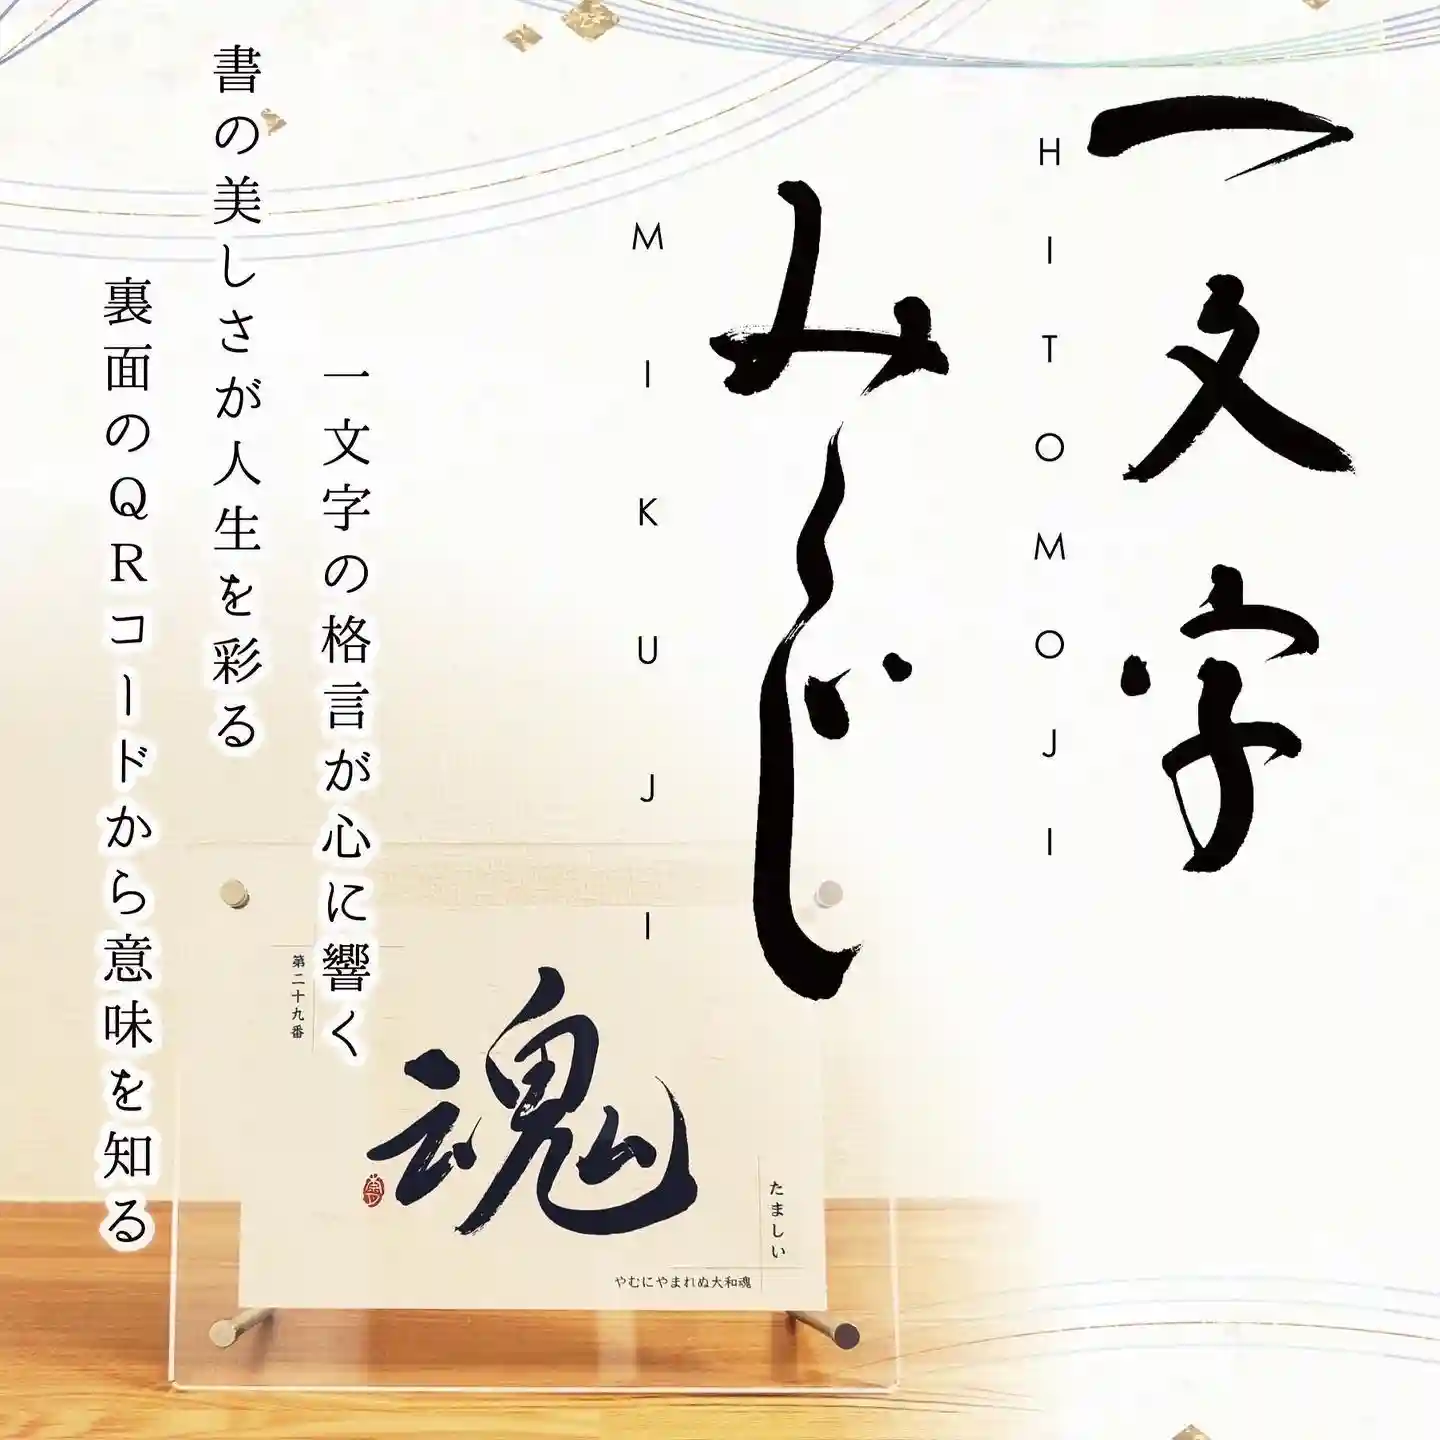 一文字
HITOMOJI
みくじ
MIKUJI
一文字の格言が心に響く
書の美しさが人生を彩る
裏面のQRコードから意味を知る
第二十九番
魂
たましい
やむにやまれぬ大和魂